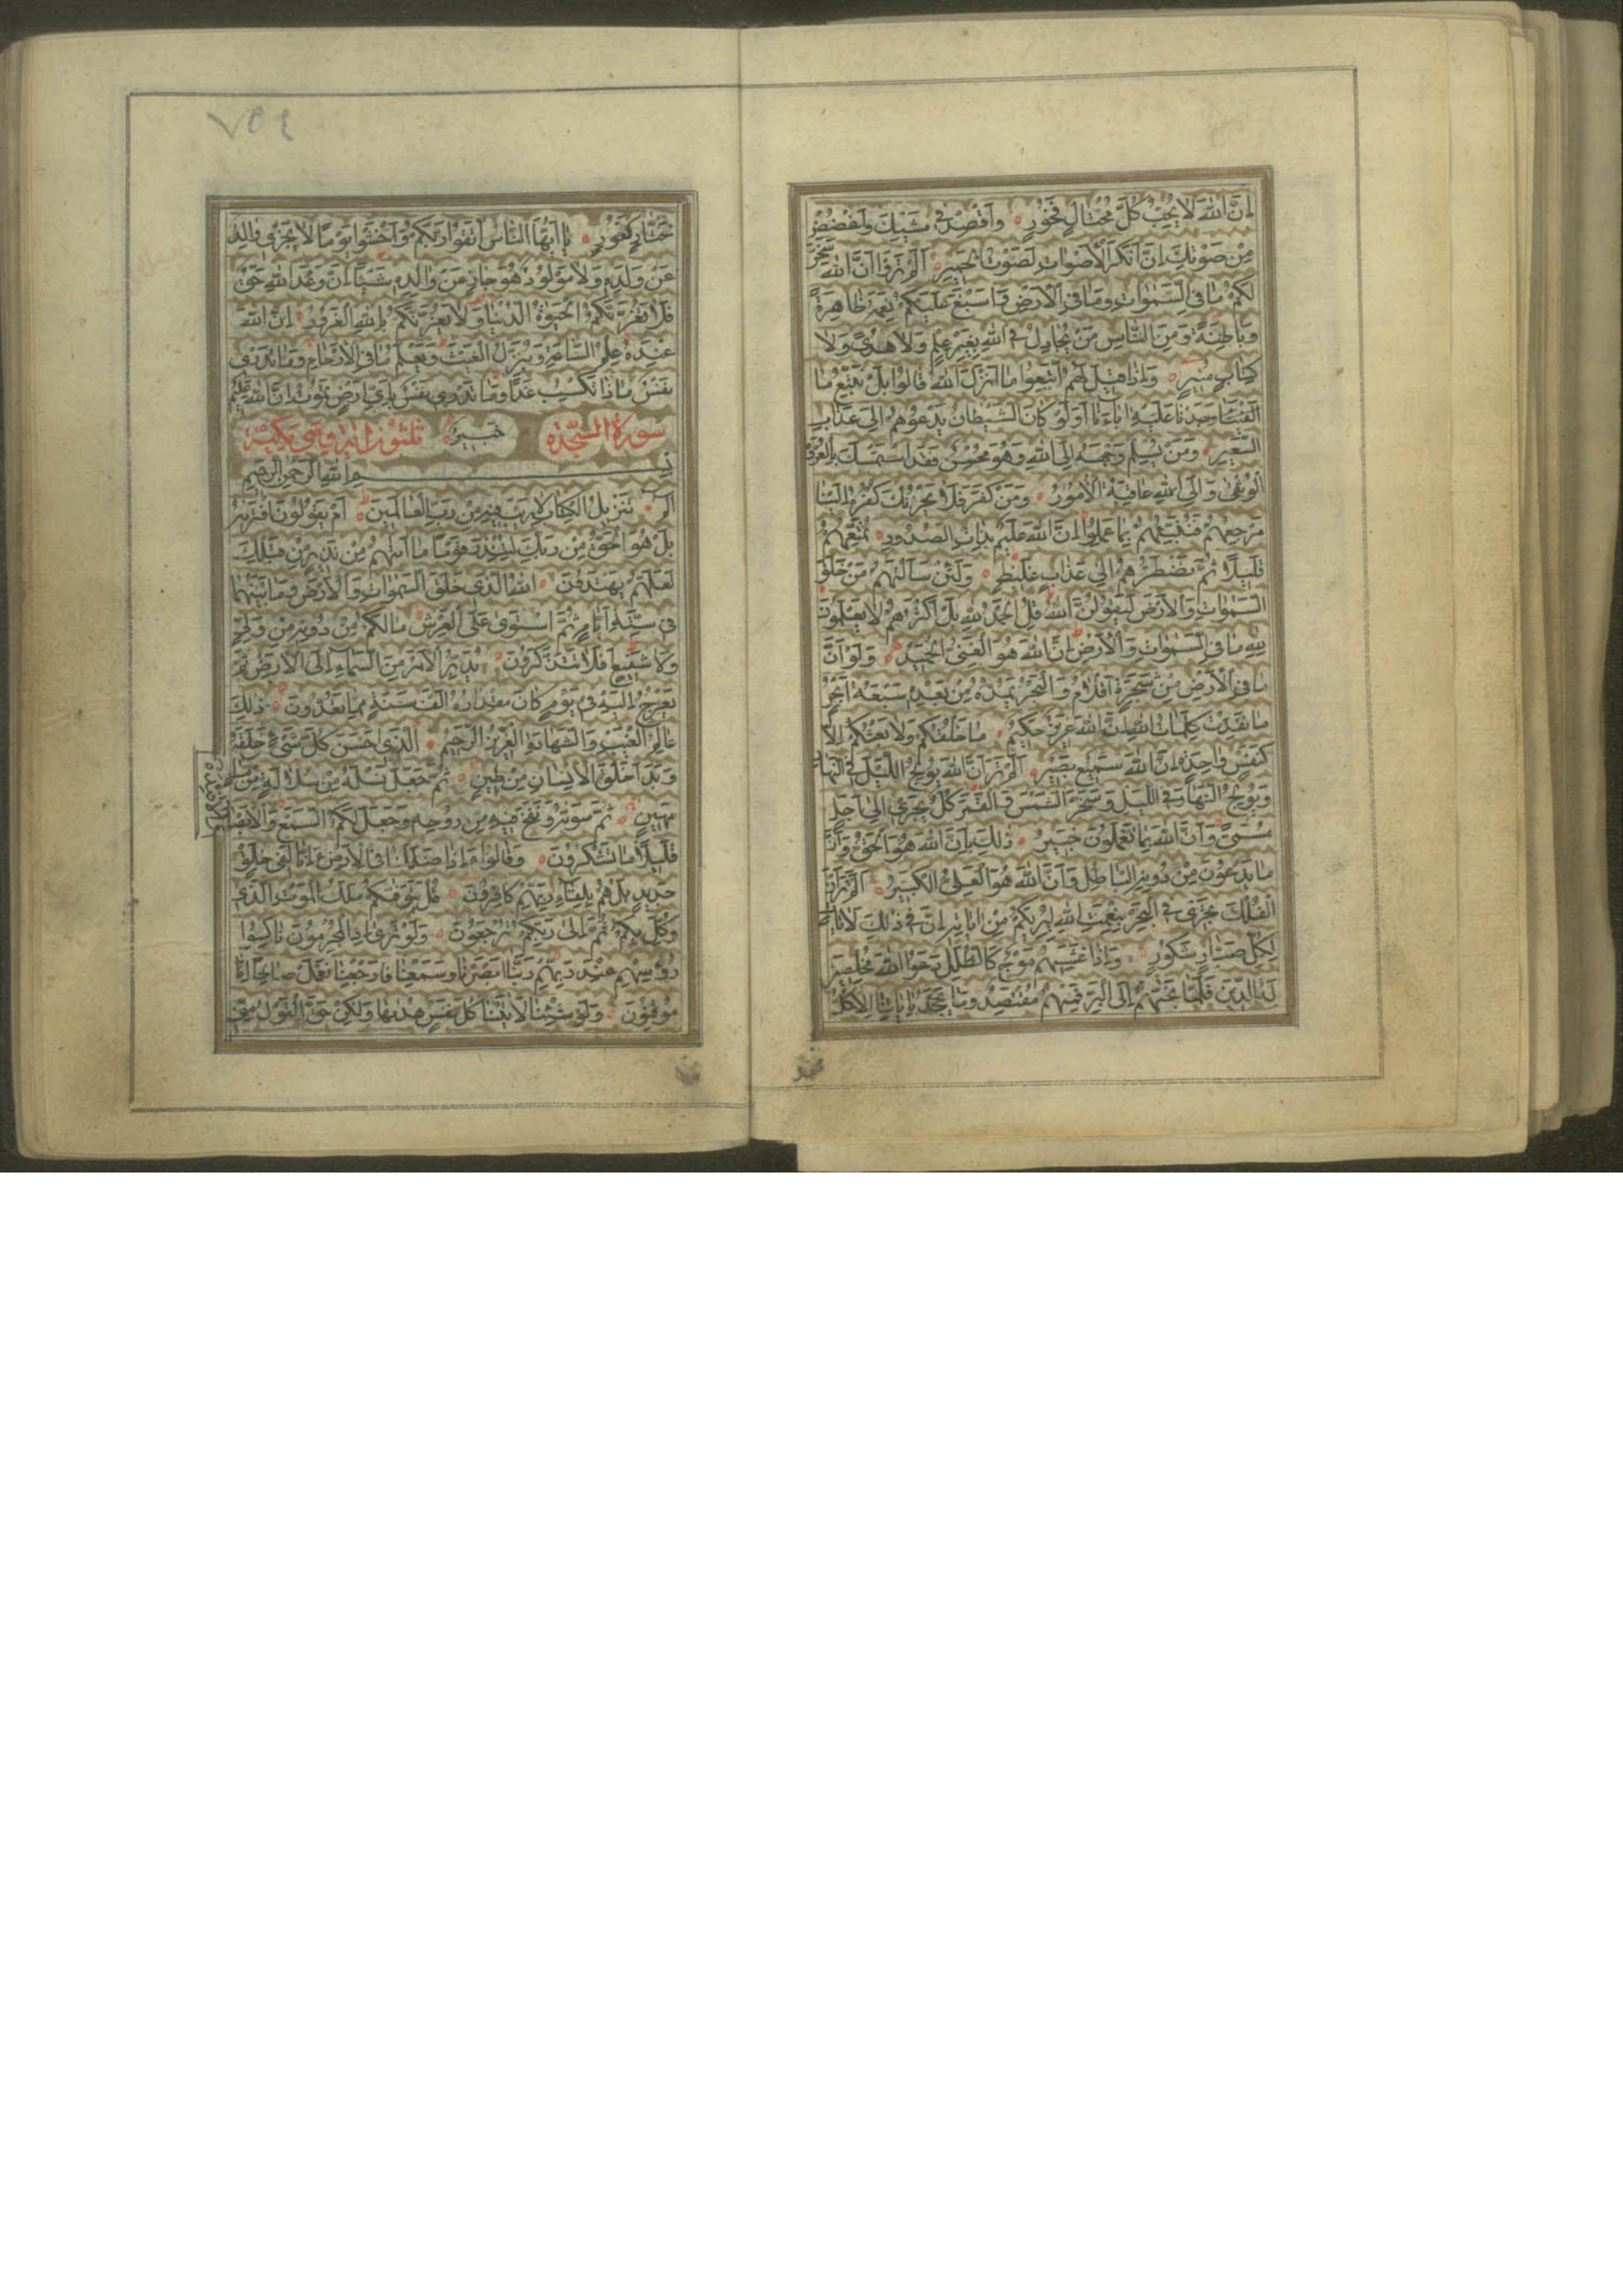 اِنَّ اللّٰهَ لَا يُحِبُّ كُلَّ مُخْتَالٍ فَخُورٍ وَاقْصِدْ فِي مَشْيِكَ وَاغْضُضْ
مِنْ صَوْتِكَ اِنَّ اَنْكَرَ الْاَصْوَاتِ لَصَوْتُ الْحَمِيرِ اَلَمْ تَرَوْا اَنَّ اللّٰهَ سَخَّرَ
لَكُمْ مَا فِي السَّمٰوَاتِ وَمَا فِي الْاَرْضِ وَاَسْبَغَ عَلَيْكُمْ نِعَمَهُ ظَاهِرَةً
وَبَاطِنَةً وَمِنَ النَّاسِ مَنْ يُجَادِلُ فِي اللّٰهِ بِغَيْرِ عِلْمٍ وَلَا هُدًى وَلَا
كِتَابٍ مُنِيرٍ وَاِذَا قِيلَ لَهُمُ اتَّبِعُوا مَا اَنْزَلَ اللّٰهُ قَالُوا بَلْ نَتَّبِعُ مَا
وَجَدْنَا عَلَيْهِ اٰبَاءَنَا اَوَلَوْ كَانَ الشَّيْطَانُ يَدْعُوهُمْ اِلٰى عَذَابِ
السَّعِيرِ وَمَنْ يُسْلِمْ وَجْهَهُ اِلَى اللّٰهِ وَهُوَ مُحْسِنٌ فَقَدِ اسْتَمْسَكَ بِالْعُرْوَةِ
الْوُثْقٰى وَاِلَى اللّٰهِ عَاقِبَةُ الْاُمُورِ وَمَنْ كَفَرَ فَلَا يَحْزُنْكَ كُفْرُهُ اِلَيْنَا
مَرْجِعُهُمْ فَنُنَبِّئُهُمْ بِمَا عَمِلُوا اِنَّ اللّٰهَ عَلِيمٌ بِذَاتِ الصُّدُورِ نُمَتِّعُهُمْ
قَلِيلًا ثُمَّ نَضْطَرُّهُمْ اِلٰى عَذَابٍ غَلِيظٍ وَلَئِنْ سَاَلْتَهُمْ مَنْ خَلَقَ
السَّمٰوَاتِ وَالْاَرْضَ لَيَقُولُنَّ اللّٰهُ قُلِ الْحَمْدُ لِلّٰهِ بَلْ اَكْثَرُهُمْ لَا يَعْلَمُونَ
لِلّٰهِ مَا فِي السَّمٰوَاتِ وَالْاَرْضِ اِنَّ اللّٰهَ هُوَ الْغَنِيُّ الْحَمِيدُ وَلَوْ اَنَّ
مَا فِي الْاَرْضِ مِنْ شَجَرَةٍ اَقْلَامٌ وَالْبَحْرُ يَمُدُّهُ مِنْ بَعْدِهِ سَبْعَةُ اَبْحُرٍ
مَا نَفِدَتْ كَلِمَاتُ اللّٰهِ اِنَّ اللّٰهَ عَزِيزٌ حَكِيمٌ مَا خَلْقُكُمْ وَلَا بَعْثُكُمْ اِلَّا
كَنَفْسٍ وَاحِدَةٍ اِنَّ اللّٰهَ سَمِيعٌ بَصِيرٌ اَلَمْ تَرَ اَنَّ اللّٰهَ يُولِجُ اللَّيْلَ فِي النَّهَارِ
وَيُولِجُ النَّهَارَ فِي اللَّيْلِ وَسَخَّرَ الشَّمْسَ وَالْقَمَرَ كُلٌّ يَجْرِي اِلٰى اَجَلٍ
مُسَمًّى وَاَنَّ اللّٰهَ بِمَا تَعْمَلُونَ خَبِيرٌ ذٰلِكَ بِاَنَّ اللّٰهَ هُوَ الْحَقُّ وَاَنَّ
مَا يَدْعُونَ مِنْ دُونِهِ الْبَاطِلُ وَاَنَّ اللّٰهَ هُوَ الْعَلِيُّ الْكَبِيرُ اَلَمْ تَرَ اَنَّ
الْفُلْكَ تَجْرِي فِي الْبَحْرِ بِنِعْمَتِ اللّٰهِ لِيُرِيَكُمْ مِنْ اٰيَاتِهِ اِنَّ فِي ذٰلِكَ لَاٰيَاتٍ
لِكُلِّ صَبَّارٍ شَكُورٍ وَاِذَا غَشِيَهُمْ مَوْجٌ كَالظُّلَلِ دَعَوُا اللّٰهَ مُخْلِصِينَ
لَهُ الدِّينَ فَلَمَّا نَجّٰهُمْ اِلَى الْبَرِّ فَمِنْهُمْ مُقْتَصِدٌ وَمَا يَجْحَدُ بِاٰيَاتِنَا اِلَّا كُلُّ
خَتَّارٍ كَفُورٍ يَا اَيُّهَا النَّاسُ اتَّقُوا رَبَّكُمْ وَاخْشَوْا يَوْمًا لَا يَجْزِي وَالِدٌ
عَنْ وَلَدِهِ وَلَا مَوْلُودٌ هُوَ جَازٍ عَنْ وَالِدِهِ شَيْئًا اِنَّ وَعْدَ اللّٰهِ حَقٌّ
فَلَا تَغُرَّنَّكُمُ الْحَيٰوةُ الدُّنْيَا وَلَا يَغُرَّنَّكُمْ بِاللّٰهِ الْغَرُورُ اِنَّ اللّٰهَ
عِنْدَهُ عِلْمُ السَّاعَةِ وَيُنَزِّلُ الْغَيْثَ وَيَعْلَمُ مَا فِي الْاَرْحَامِ وَمَا تَدْرِي
نَفْسٌ مَاذَا تَكْسِبُ غَدًا وَمَا تَدْرِي نَفْسٌ بِاَيِّ اَرْضٍ تَمُوتُ اِنَّ اللّٰهَ عَلِيمٌ
سورة السجدة خَبِيرٌ ثلثون اية وهي مكية
بسم الله الرحمن الرحيم
الم تَنْزِيلُ الْكِتَابِ لَا رَيْبَ فِيهِ مِنْ رَبِّ الْعَالَمِينَ اَمْ يَقُولُونَ افْتَرٰيهُ
بَلْ هُوَ الْحَقُّ مِنْ رَبِّكَ لِتُنْذِرَ قَوْمًا مَا اَتٰيهُمْ مِنْ نَذِيرٍ مِنْ قَبْلِكَ
لَعَلَّهُمْ يَهْتَدُونَ اَللّٰهُ الَّذِي خَلَقَ السَّمٰوَاتِ وَالْاَرْضَ وَمَا بَيْنَهُمَا
فِي سِتَّةِ اَيَّامٍ ثُمَّ اسْتَوٰى عَلَى الْعَرْشِ مَا لَكُمْ مِنْ دُونِهِ مِنْ وَلِيٍّ
وَلَا شَفِيعٍ اَفَلَا تَتَذَكَّرُونَ يُدَبِّرُ الْاَمْرَ مِنَ السَّمَاءِ اِلَى الْاَرْضِ ثُمَّ
يَعْرُجُ اِلَيْهِ فِي يَوْمٍ كَانَ مِقْدَارُهُ اَلْفَ سَنَةٍ مِمَّا تَعُدُّونَ ذٰلِكَ
عَالِمُ الْغَيْبِ وَالشَّهَادَةِ الْعَزِيزُ الرَّحِيمُ اَلَّذِي اَحْسَنَ كُلَّ شَيْءٍ خَلَقَهُ
وَبَدَاَ خَلْقَ الْاِنْسَانِ مِنْ طِينٍ ثُمَّ جَعَلَ نَسْلَهُ مِنْ سُلَالَةٍ مِنْ
مَهِينٍ ثُمَّ سَوّٰيهُ وَنَفَخَ فِيهِ مِنْ رُوحِهِ وَجَعَلَ لَكُمُ السَّمْعَ وَالْاَبْصَارَ
قَلِيلًا مَا تَشْكُرُونَ وَقَالُوا ءَاِذَا ضَلَلْنَا فِي الْاَرْضِ ءَاِنَّا لَفِي خَلْقٍ
جَدِيدٍ بَلْ هُمْ بِلِقَاءِ رَبِّهِمْ كَافِرُونَ قُلْ يَتَوَفّٰيكُمْ مَلَكُ الْمَوْتِ الَّذِي
وُكِّلَ بِكُمْ ثُمَّ اِلٰى رَبِّكُمْ تُرْجَعُونَ وَلَوْ تَرٰى اِذِ الْمُجْرِمُونَ نَاكِسُوا
رُؤُسِهِمْ عِنْدَ رَبِّهِمْ رَبَّنَا اَبْصَرْنَا وَسَمِعْنَا فَارْجِعْنَا نَعْمَلْ صَالِحًا اِنَّا
مُوقِنُونَ وَلَوْ شِئْنَا لَاٰتَيْنَا كُلَّ نَفْسٍ هُدٰيهَا وَلٰكِنْ حَقَّ الْقَوْلُ مِنِّي